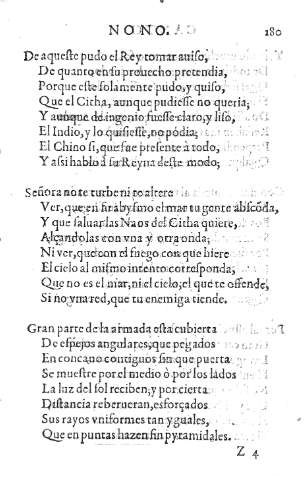 NONO. 180
De aqueste pudo el Rey tomar auiso,
De quanto en su prouecho pretendia,
Porque este solamente pudo, y quiso,
Que el Citha, aunque pudiesse no queria;
Y aunque de ingenio fuesse claro, y liso,
El Indio, y lo quisiesse, no podia;
El Chino si, que fue presente à todo,
Y assi hablò à su Reyna deste modo;
Señora no te turbe ni te altere
Ver, que en su abysmo el mar tu gente abscõda,
Y que saluar las Naos del Citha quiere,
Alçandolas con vna y otra onda;
Ni ver, que con el fuego con que hiere
El cielo al mismo intento corresponda;
Que no es el mar, ni el cielo, el que te offende,
Si no vna red, que tu enemiga tiende.
Gran parte de la armada està cubierta
De espejos angulares, que pegados
En concauo contiguos sin que puerta
Se muestre por el medio ò por los lados
La luz del sol reciben; y por cierta
Distancia reberueran, esforçados
Sus rayos vniformes tan yguales,
Que en puntas hazen fin pyramidales.
Z 4